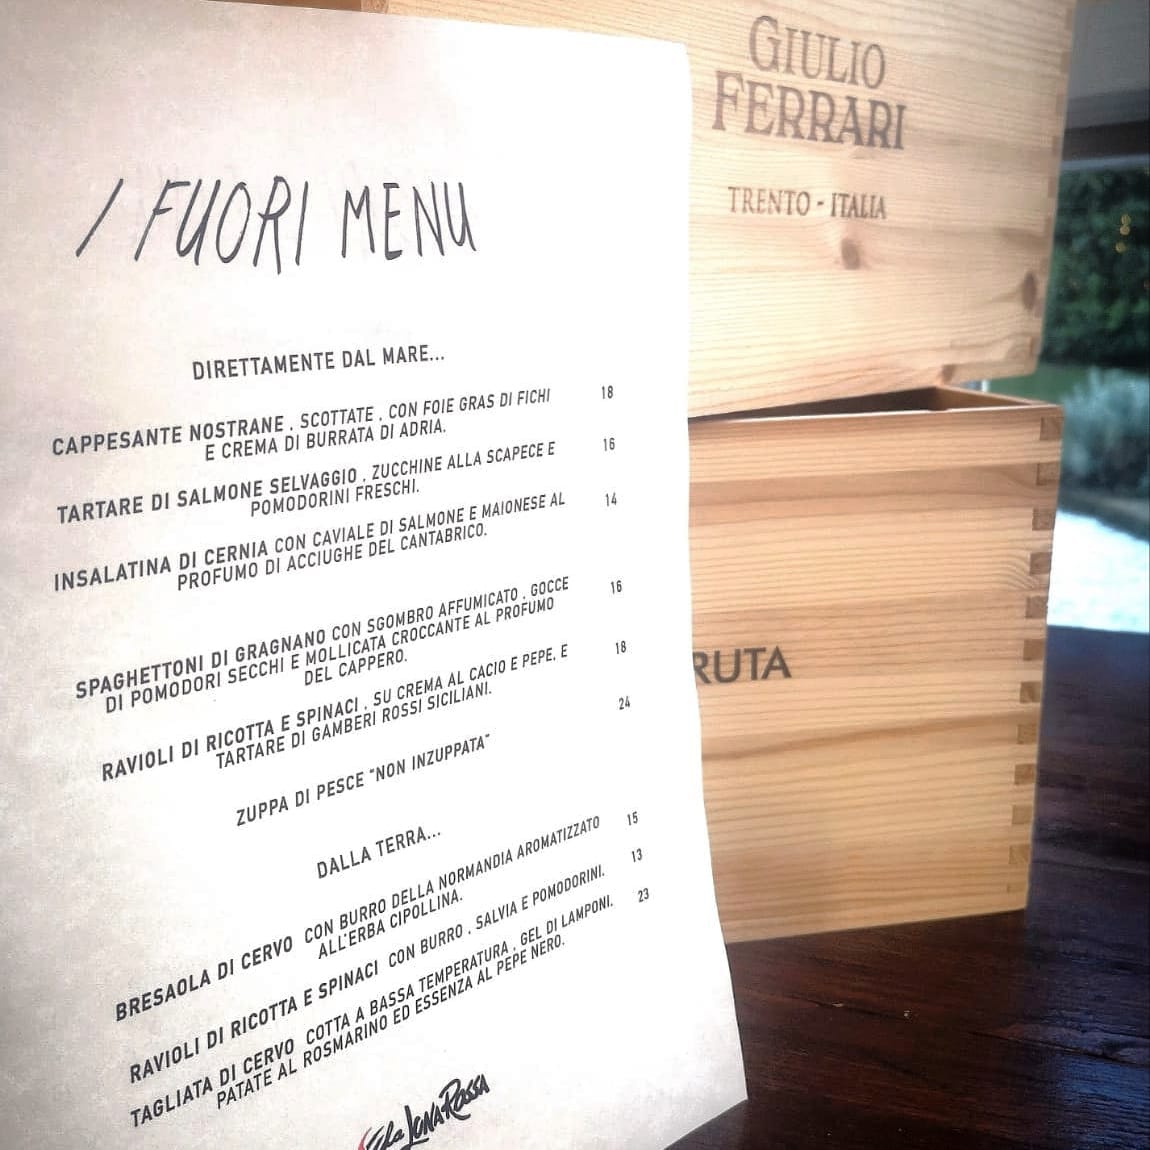 I FUORI MENU
DIRETTAMENTE DAL MARE...
CAPPESANTE NOSTRANE . SCOTTATE . CON FOIE GRAS DI FICHI 18
E CREMA DI BURRATA DI ADRIA.
TARTARE DI SALMONE SELVAGGIO . ZUCCHINE ALLA SCAPECE E 16
POMODORINI FRESCHI.
INSALATINA DI CERNIA CON CAVIALE DI SALMONE E MAIONESE AL 14
PROFUMO DI ACCIUGHE DEL CANTABRICO.
SPAGHETTONI DI GRAGNANO CON SGOMBRO AFFUMICATO . GOCCE 16
DI POMODORI SECCHI E MOLLICATA CROCCANTE AL PROFUMO
DEL CAPPERO.
RAVIOLI DI RICOTTA E SPINACI . SU CREMA AL CACIO E PEPE, E 18
TARTARE DI GAMBERI ROSSI SICILIANI.
ZUPPA DI PESCE "NON INZUPPATA" 24
DALLA TERRA...
BRESAOLA DI CERVO CON BURRO DELLA NORMANDIA AROMATIZZATO 15
ALL'ERBA CIPOLLINA.
RAVIOLI DI RICOTTA E SPINACI CON BURRO . SALVIA E POMODORINI. 13
TAGLIATA DI CERVO COTTA A BASSA TEMPERATURA . GEL DI LAMPONI. 23
PATATE AL ROSMARINO ED ESSENZA AL PEPE NERO.
LUNA ROSSA
GIULIO
FERRARI
TRENTO - ITALIA
RUTA